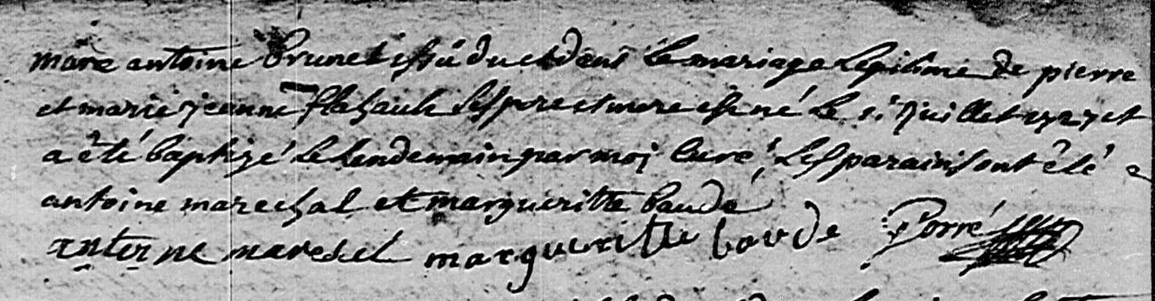 marc antoine brunet issû du et dans le mariage legitime de pierre
et marie jeanne flahault ses pere et mere est né le 1.r juillet 1727 et
a êté baptizé le lendemain par moi curé les parains ont êté
antoine marechal et margueritte baudé
antoine maresel margueritte baude Porré